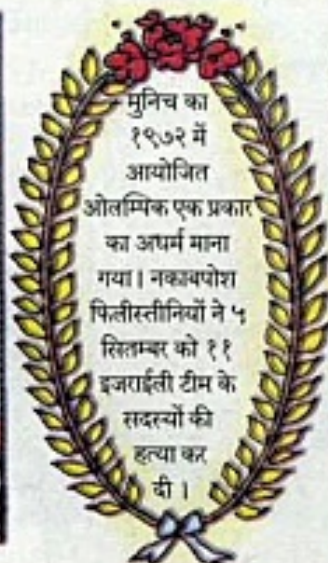 मुनिच का
१९७२ में
आयोजित
ओलम्पिक एक प्रकार
का अधर्म माना
गया। नकाबपोश
फिलीस्तीनियों ने ५
सितम्बर को ११
इजराईली टीम के
सदस्यों की
हत्या कर
दी ।